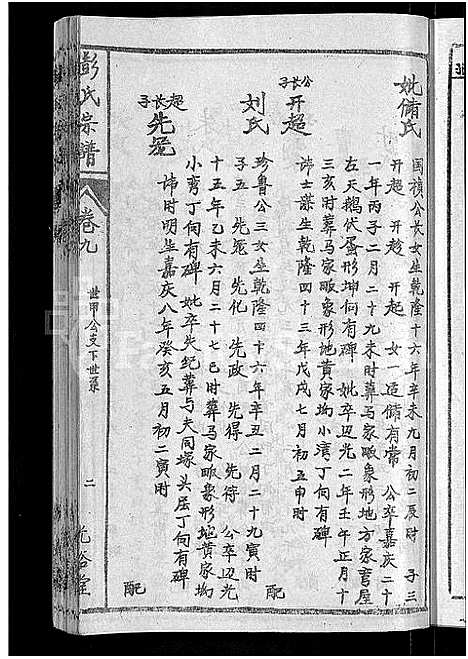 妣脩氏
国槙公長女生乾隆十六年辛未九月初二辰时 子三
开超 开趁 开起 女一适脩有常 公卒嘉庆二十
一年丙子二月二十九未时葬马家畈象形地方家書屋
左天鹅伏蛋形坤向有碑 妣卒道光二年壬午正月十
三亥时葬马家畈象形地黄家坳小湾丁向有碑
公長子 开超
讳士谋生乾隆四十三年戊戌七月初五申时 配
刘氏
珍鲁公三女生乾隆四十六年辛丑二月二十九寅时
子五 先冕 先化 先政 先得 先待 公卒道光
十五年乙未六月二十七巳时葬马家畈象形地黄家坳
小弯丁向有碑 妣卒失纪葬与夫同塚头届丁向有碑
超長子 先冕
讳时明生嘉庆八年癸亥五月初二寅时 配
彭氏宗譜
卷九
世甲公支下世系
二
光裕堂